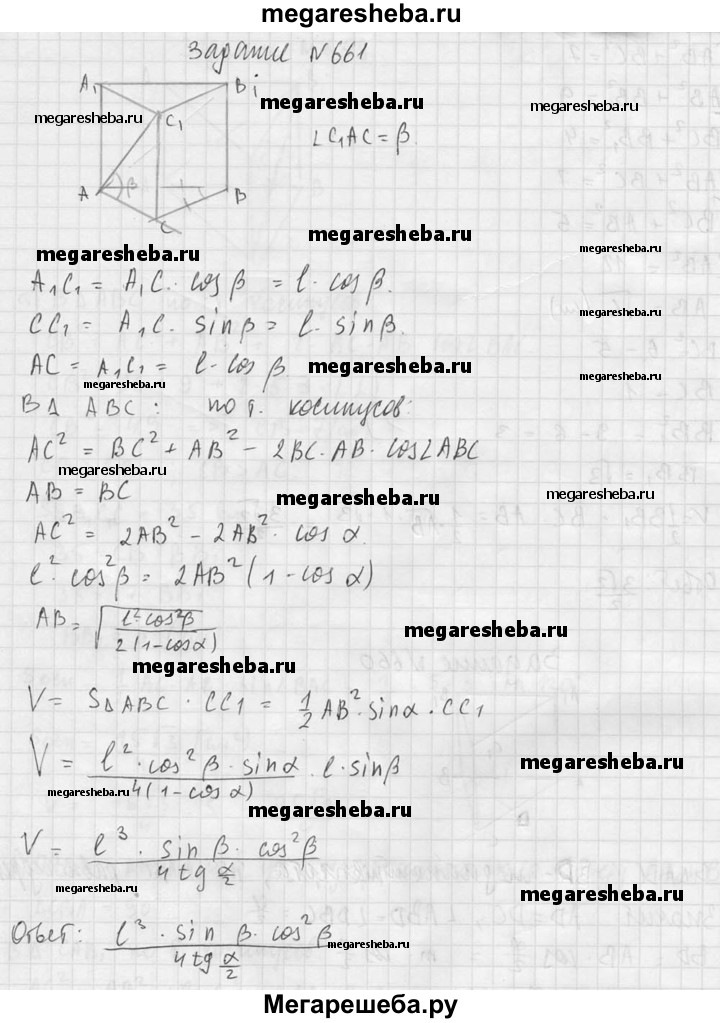 megaresheba.ru
Задание №661
A₁ B₁ C₁ A β B C
megaresheba.ru
megaresheba.ru
∠C₁AC = β.
megaresheba.ru
megaresheba.ru
A₁C₁ = A₁C · cos β = l · cos β.
CC₁ = A₁C · sin β = l · sin β.
AC = A₁C₁ = l · cos β
megaresheba.ru
megaresheba.ru
В Δ ABC : по т. косинусов:
AC² = BC² + AB² - 2BC · AB · cos∠ABC
megaresheba.ru
AB = BC
megaresheba.ru
megaresheba.ru
AC² = 2AB² - 2AB² · cos α.
l² · cos²β = 2AB² (1 - cos α)
AB = √(l² · cos²β / 2(1 - cos α))
megaresheba.ru
megaresheba.ru
V = SΔABC · CC1 = 1/2 AB² · sinα · CC1
V = l² · cos²β · sinα / 4(1 - cos α) · l · sinβ
megaresheba.ru
megaresheba.ru
megaresheba.ru
V = l³ · sin β · cos²β / 4 tg α/2
megaresheba.ru
megaresheba.ru
Ответ: l³ · sin β · cos²β / 4 tg α/2
megaresheba.ru
megaresheba.ru
Мегарешеба.ру